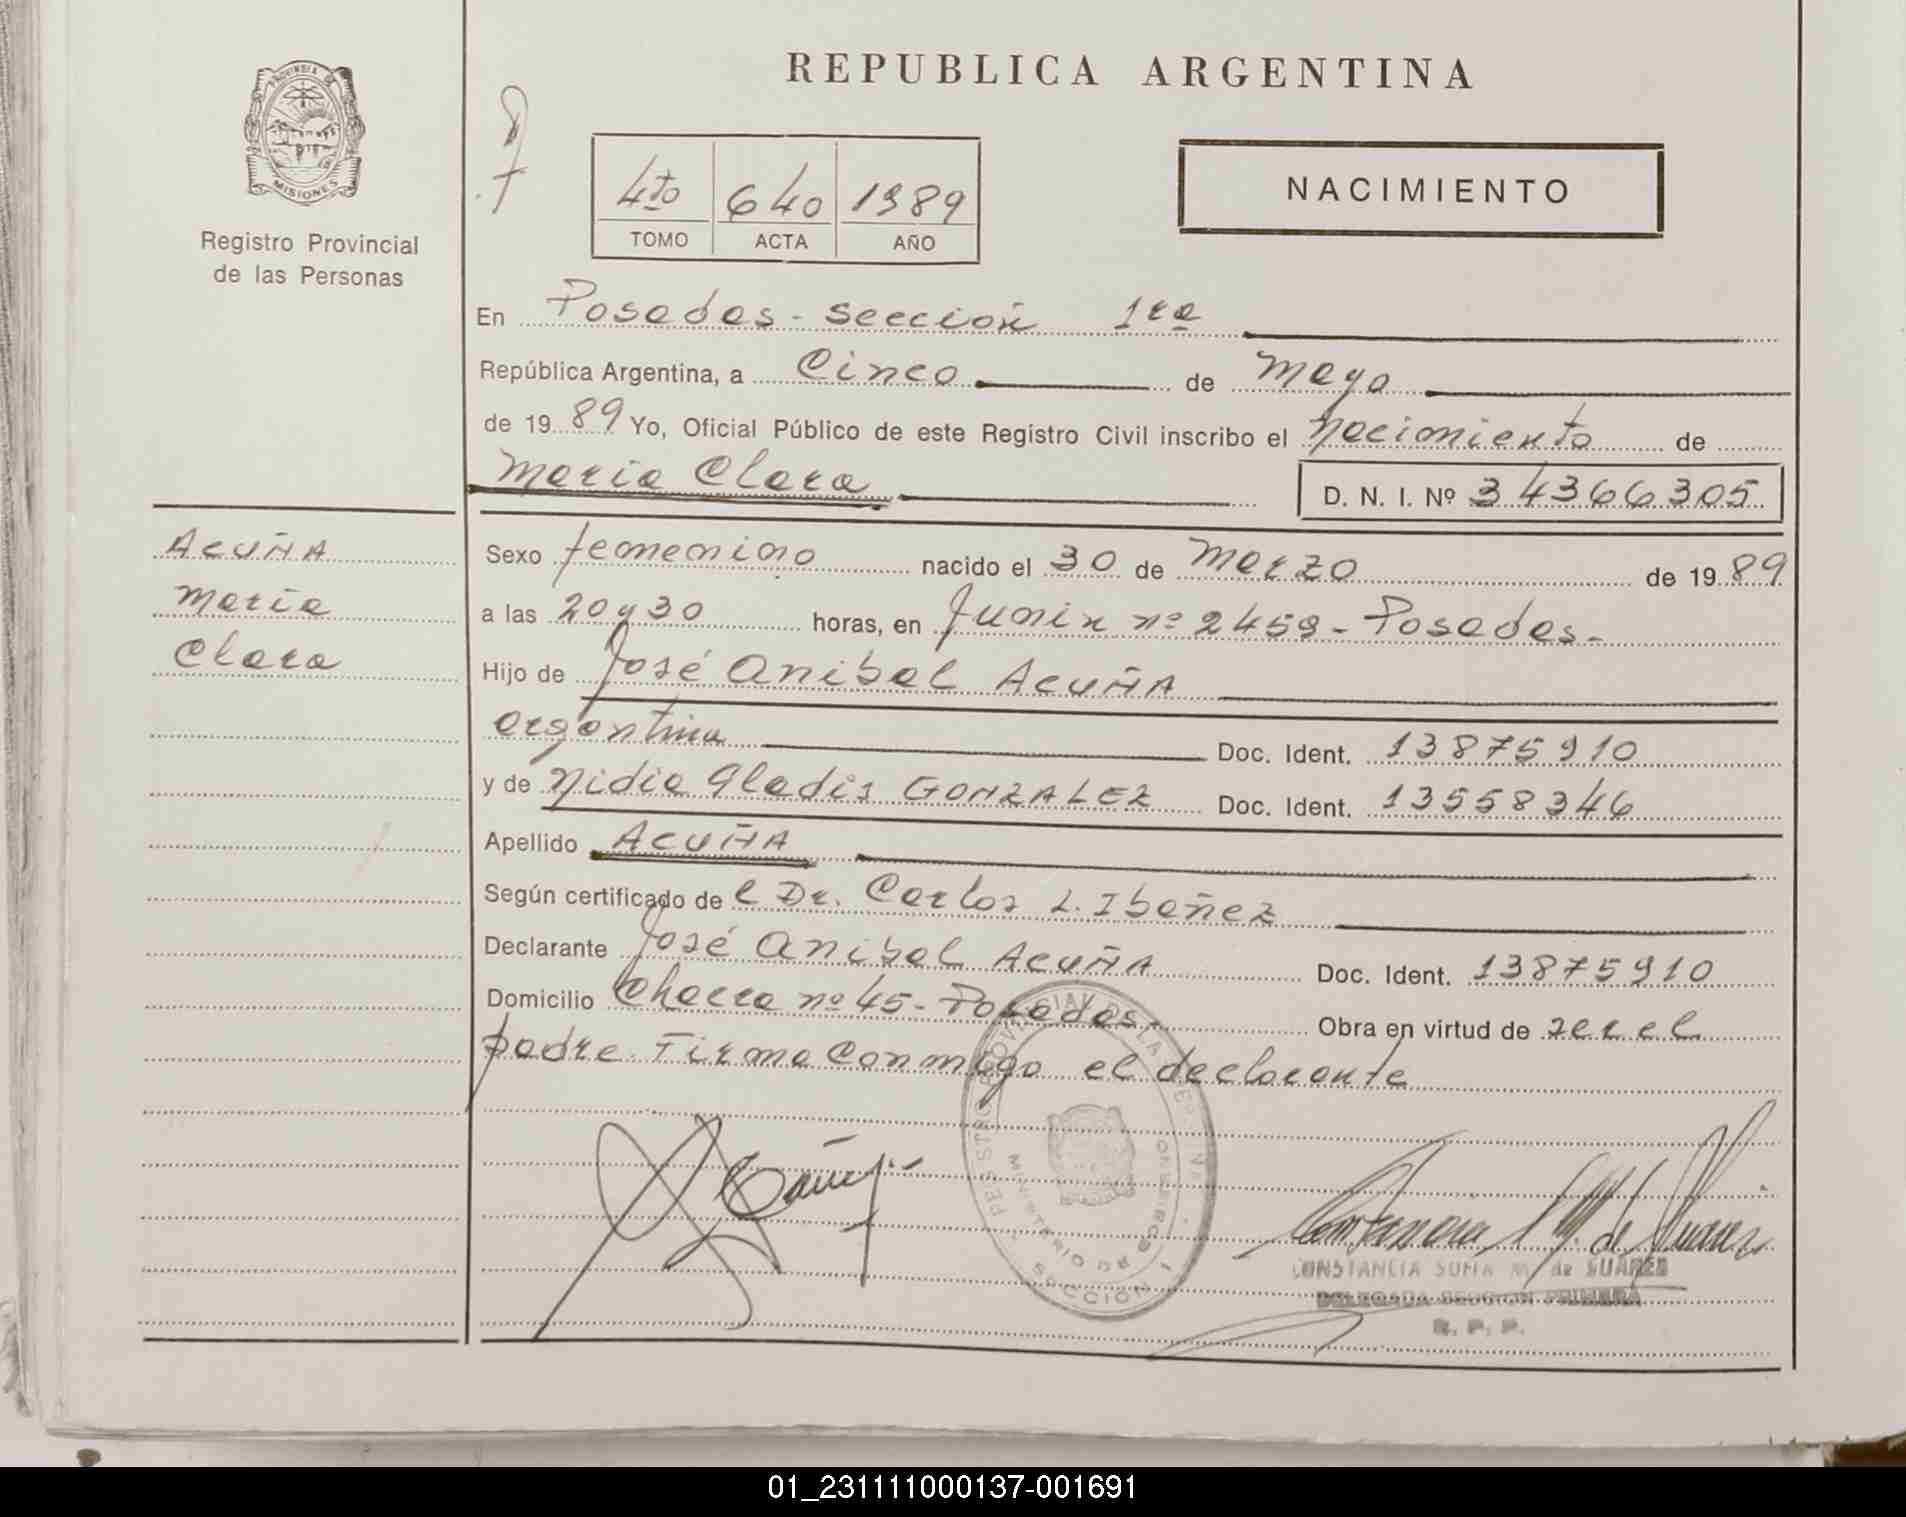 REPUBLICA ARGENTINA
PROVINCIA DE
MISIONES
Registro Provincial
de las Personas
4to 640 1989
TOMO ACTA AÑO
NACIMIENTO
En Posadas - sección 1ra
República Argentina, a Cinco de mayo
de 1989 Yo, Oficial Público de este Registro Civil inscribo el nacimiento de
María Clara
D. N. I. Nº 34366305
ACUÑA
María
Clara
Sexo femenino nacido el 30 de Marzo de 1989
a las 20 y 30 horas, en Junín nº 2459 - Posadas -
Hijo de José Anibal ACUÑA
argentina Doc. Ident. 13875910
y de Nidia Gladis GONZALEZ Doc. Ident. 13558346
Apellido ACUÑA
Según certificado de l Dr. Carlos L. Ibañez
Declarante José Anibal ACUÑA Doc. Ident. 13875910
Domicilio Chacra nº 45 - Posadas - Obra en virtud de ser el
padre. Firma conmigo el declarante
MINISTERIO DE GOBIERNO
SECCION 1
CONSTANCIA SOFIA M. de SUAREZ
DELEGADA SECCION PRIMERA
R. P. P.
01_231111000137-001691